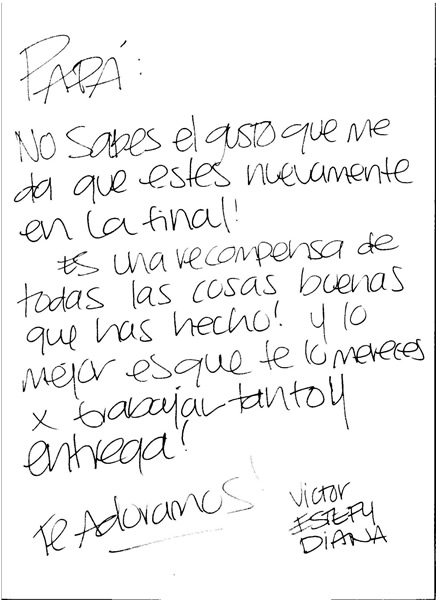 PAPÁ:
No sabes el gusto que me
da que estes nuevamente
en la final!
Es una recompensa de
todas las cosas buenas
que has hecho! y lo
mejor es que te lo mereces
x trabajar tanto y
entrega!
Te Adoramos!
Victor
ESTEFY
DIANA